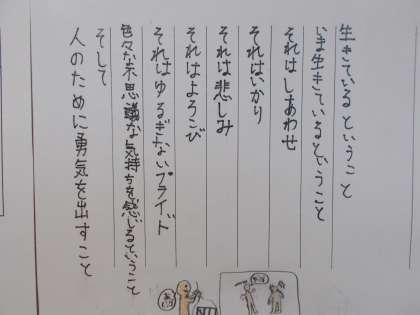 生きているということ
いま生きているということ
それはしあわせ
それはいかり
それは悲しみ
それはよろこび
それはゆるぎないプライド
色々な不思議な気持ちを感じるということ
そして
人のために勇気を出すこと